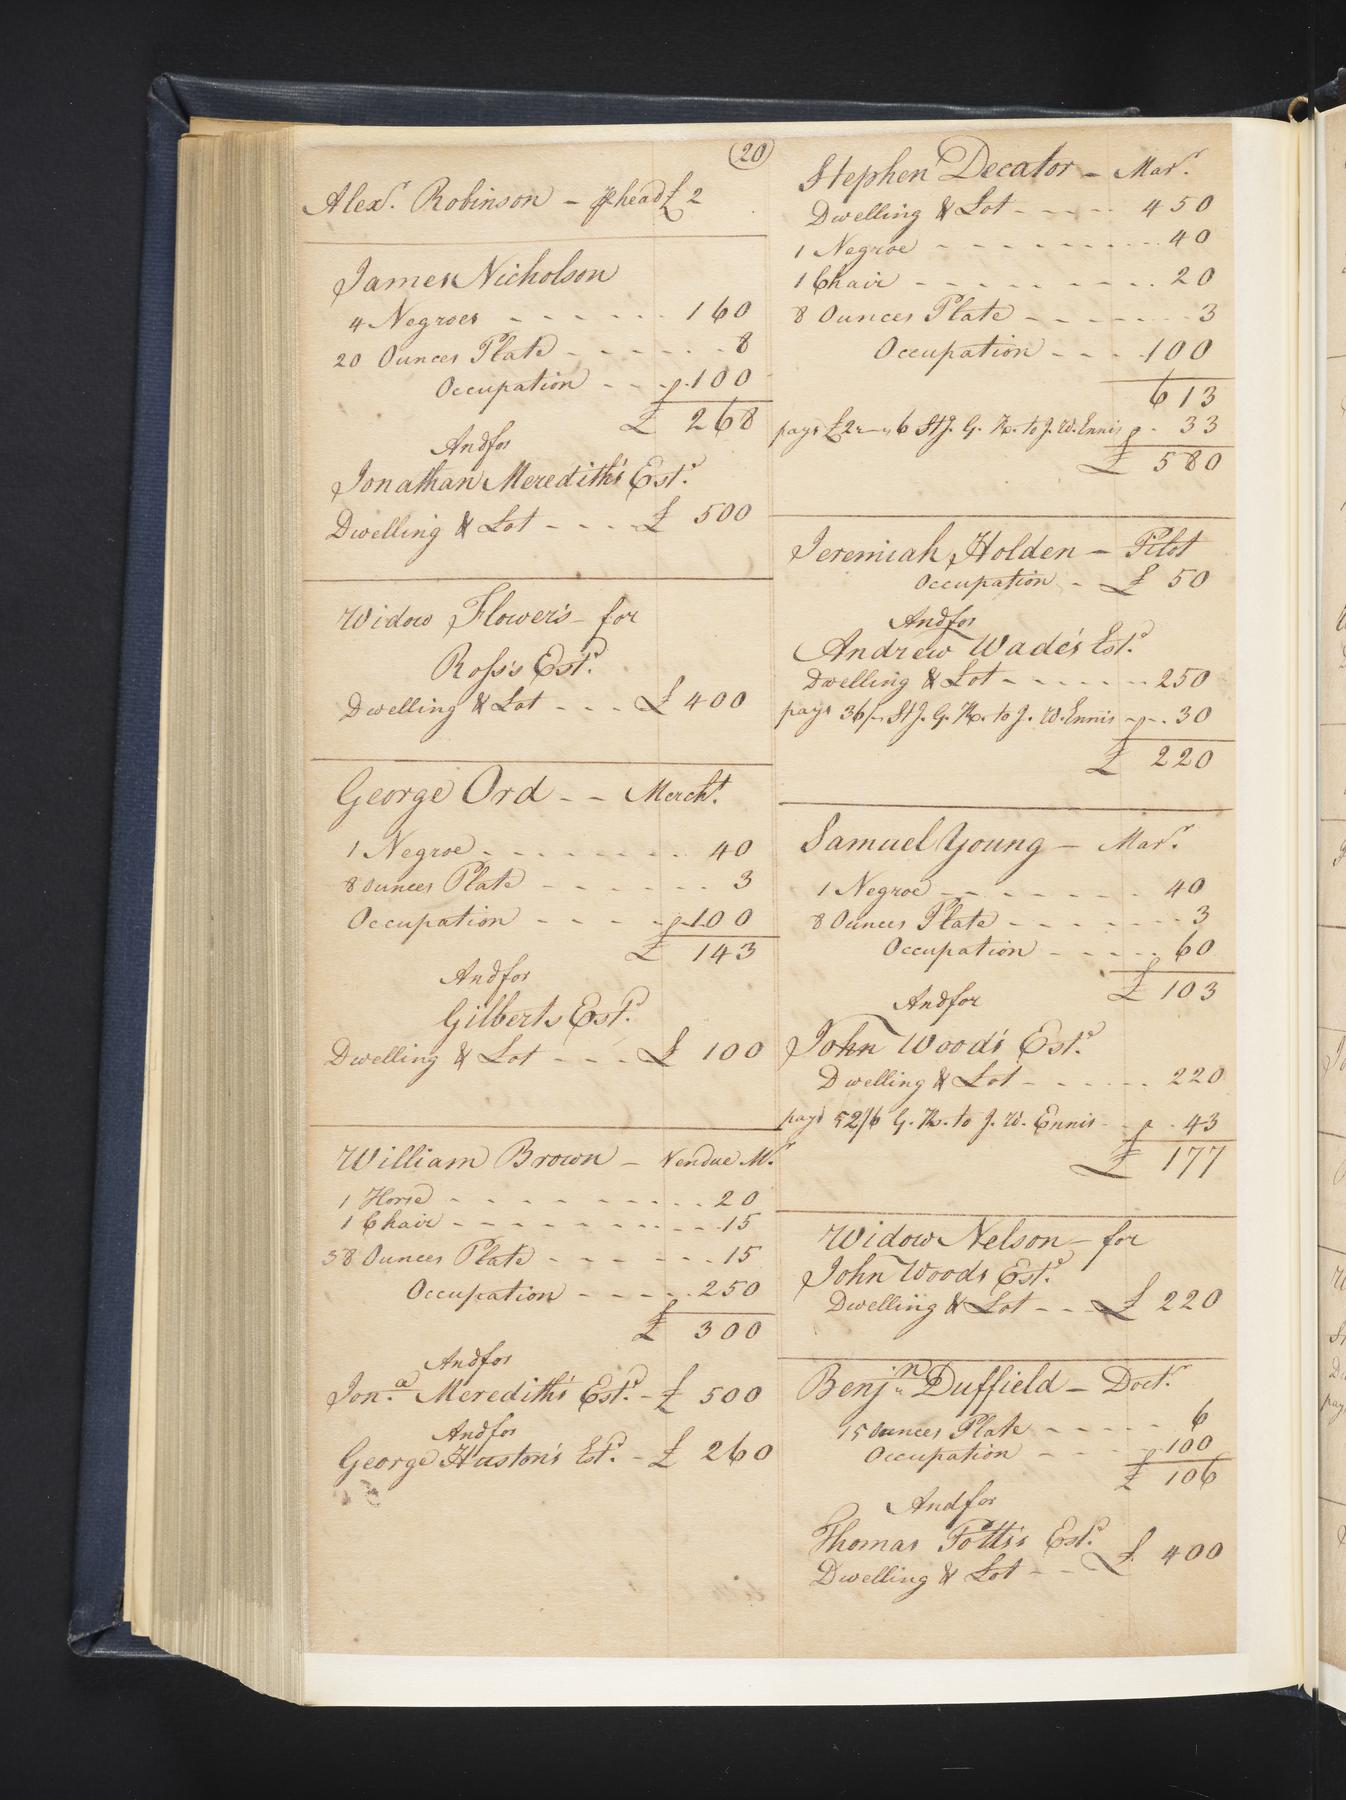 20
Alexr. Robinson - p head £ 2
James Nicholson
4 Negroes - - - - - - 160
20 Ounces Plate - - - - - - 8
Occupation - - - 100
£ 268
And for
Jonathan Meredith's Estd.
Dwelling & Lot - - - - £ 500
Widow Flower's - for
Ross's Estd.
Dwelling & Lot - - - £ 400
George Ord - - Mercht.
1 Negroe - - - - - - - - 40
8 Ounces Plate - - - - - - - 3
Occupation - - - - - 100
£ 143
And for
Gilberts Estd.
Dwelling & Lot - - - - £ 100
William Brown - Vendue Mr.
1 Horse - - - - - - - - - 20
1 Chair - - - - - - - - - - 15
38 Ounces Plate - - - - - - - 15
Occupation - - - - - 250
£ 300
And for
Jona. Meredith's Estd. - £ 500
And for
George Huston's Estd. - £ 260
Stephen Decator - Marr.
Dwelling & Lot - - - - - 450
1 Negroe - - - - - - - - - - 40
1 Chair - - - - - - - - - - 20
8 Ounces Plate - - - - - - - - 3
Occupation - - - - 100
613
pays £2 - - 6 St J. G. R. to J. W. Ennis - 33
£ 580
Jeremiah Holden - Pilot
Occupation - - £ 50
And for
Andrew Wade's Estd.
Dwelling & Lot - - - - - - - 250
pays 36/- St J. G. R. to J. W. Ennis - - 30
£ 220
Samuel Young - Marr.
1 Negroe - - - - - - - - 40
8 Ounces Plate - - - - - - - - 3
Occupation - - - - - 60
£ 103
And for
John Wood's Estd.
Dwelling & Lot - - - - - - 220
pays 52/6 G. R. to J. W. Ennis - - 43
£ 177
Widow Nelson - for
John Woods Estd.
Dwelling & Lot - - - £ 220
Benjn. Duffield - Doctr.
15 Ounces Plate - - - - - 6
Occupation - - - - 100
£ 106
And for
Thomas Potts's Estd.
Dwelling & Lot - - - £ 400